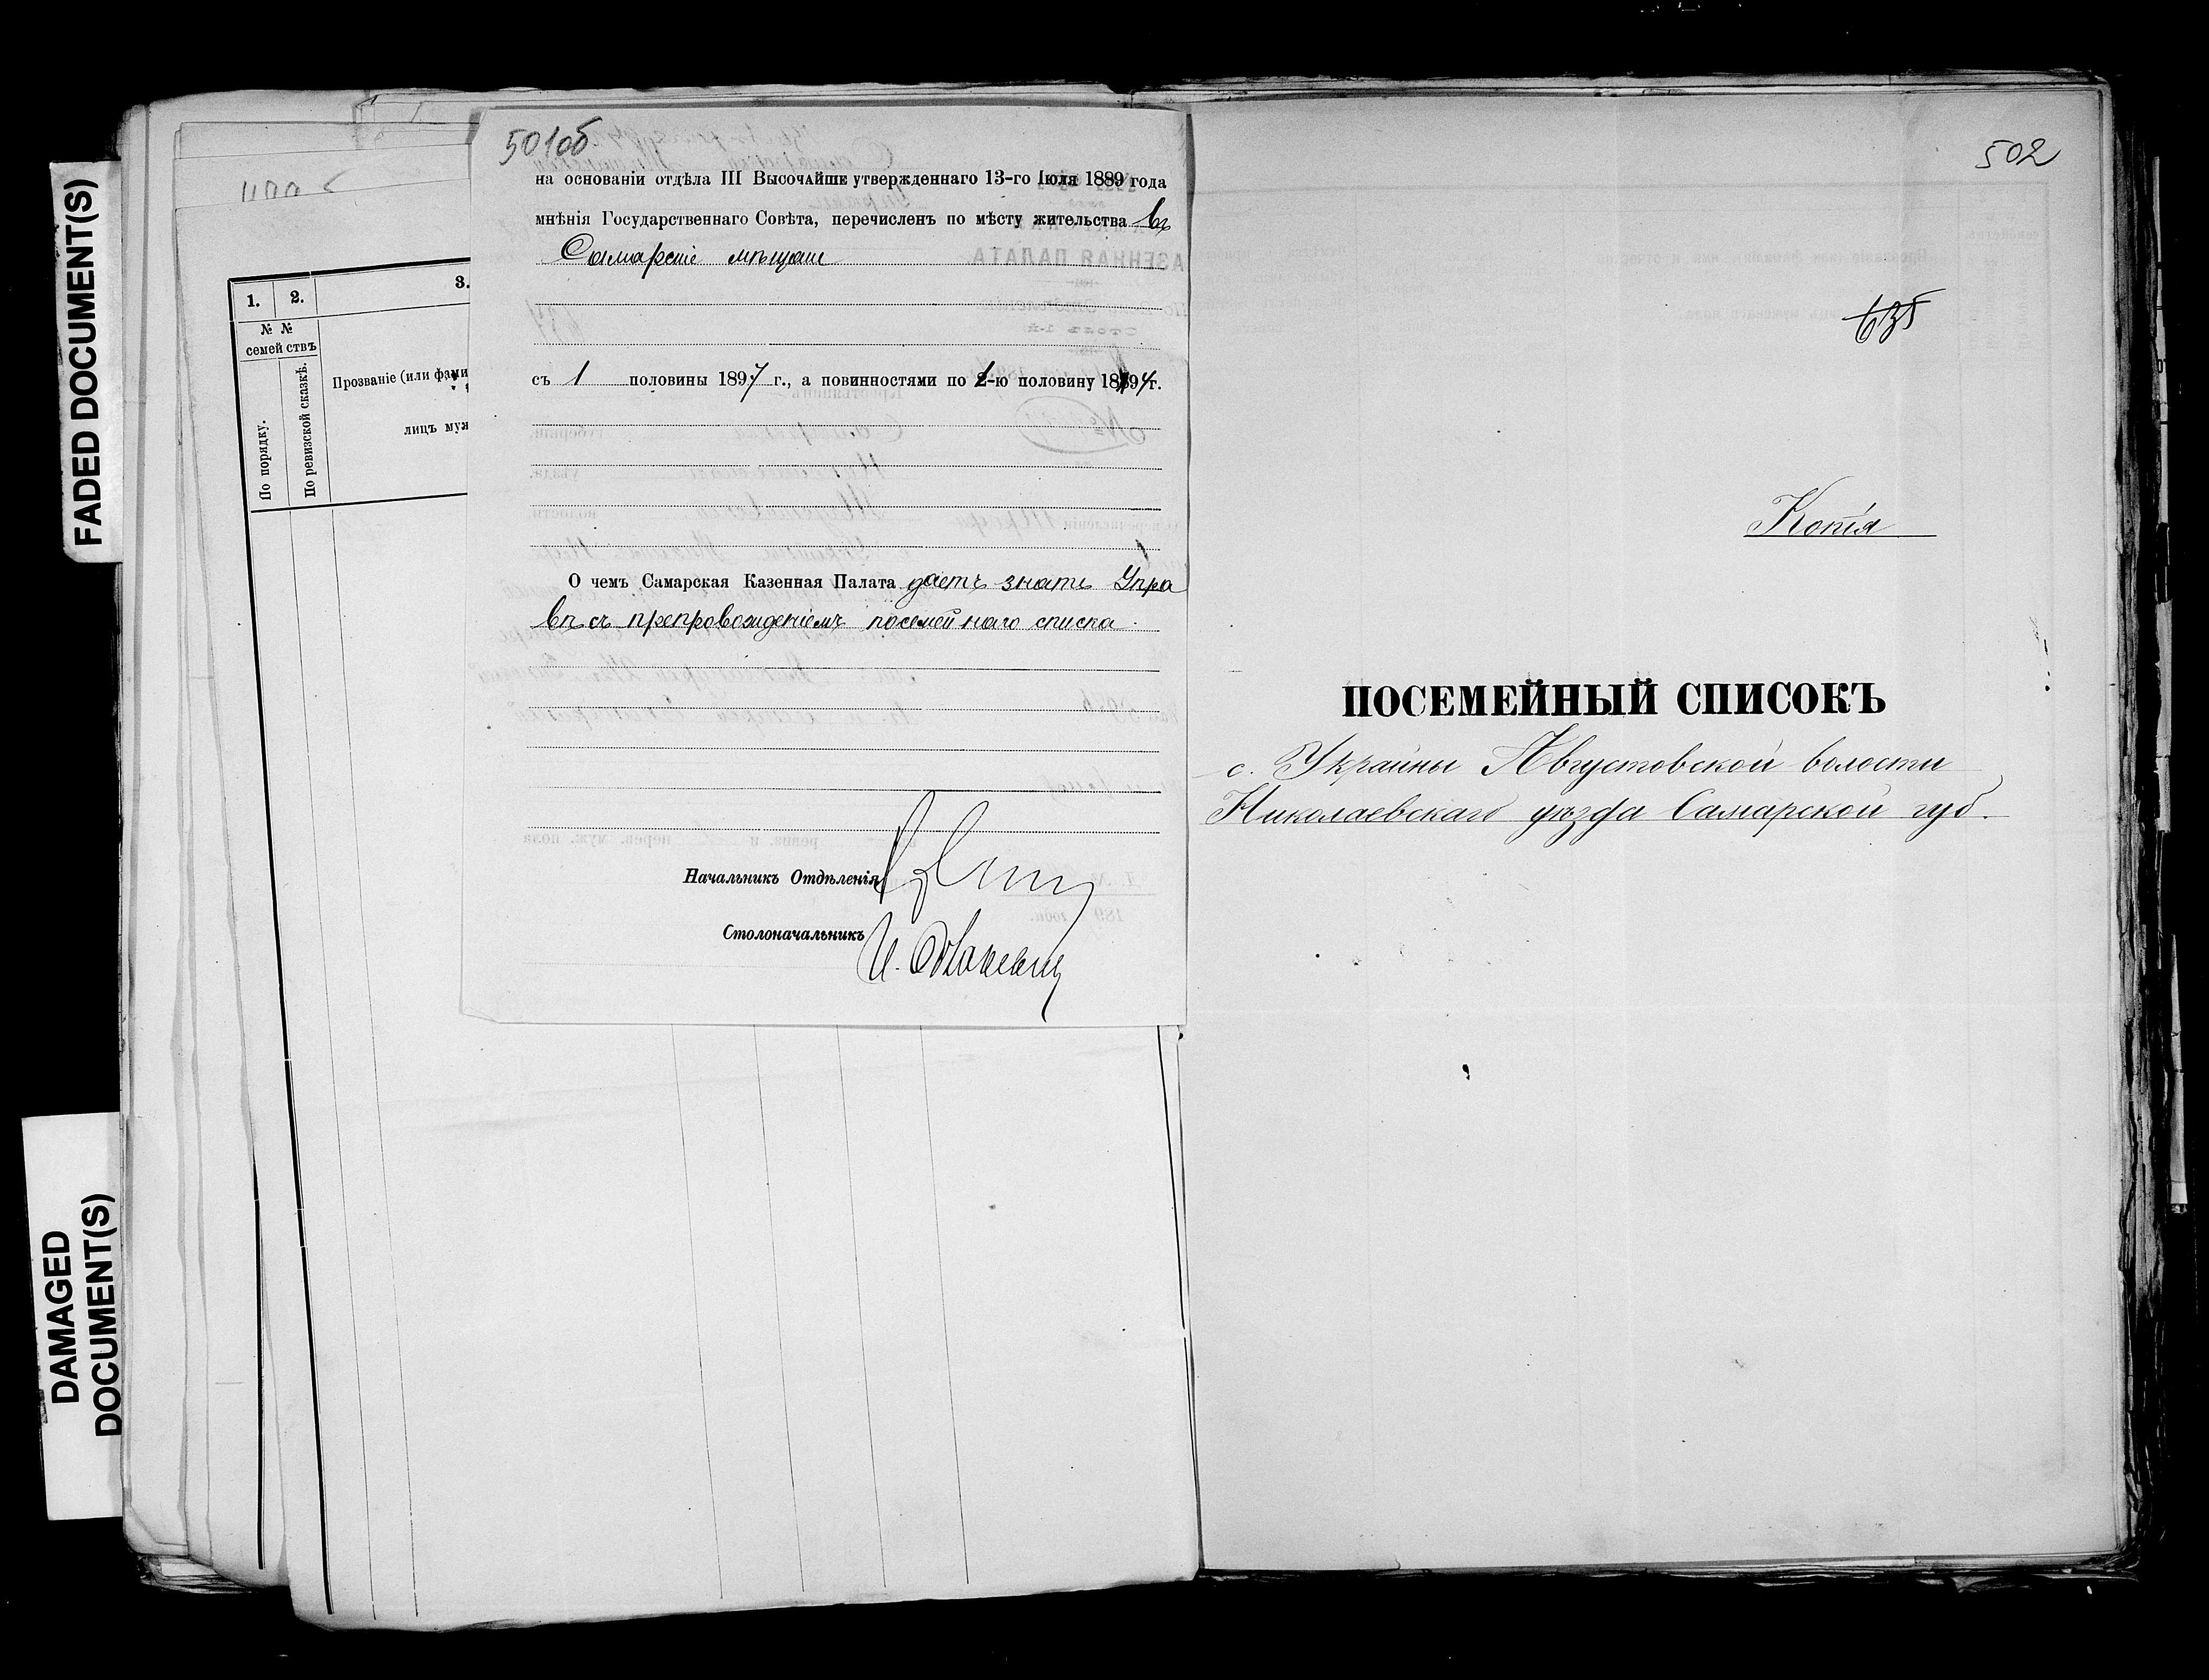 FADED DOCUMENT(S)
DAMAGED
DOCUMENT(S)
1.
2.
3.
№ №
семействъ
По порядку.
По ревизской сказкѣ.
Прозваніе (или фами
лицъ муж
501об
на основаніи отдѣла III Высочайше утвержденнаго 13-го Іюля 1889 года
мнѣнія Государственнаго Совѣта, перечисленъ по мѣсту жительства въ
Самарскіе мѣщане
съ 1 половины 1897 г., а повинностями по -ю половину 1894 г.
О чемъ Самарская Казенная Палата даетъ знать Упра
вѣ съ препровожденіемъ посемейнаго списка.
Начальникъ Отдѣленія
Столоначальникъ И.
502
635
Копія
ПОСЕМЕЙНЫЙ СПИСОКЪ
с. Украины Августовской волости
Николаевскаго уѣзда Самарской губ.